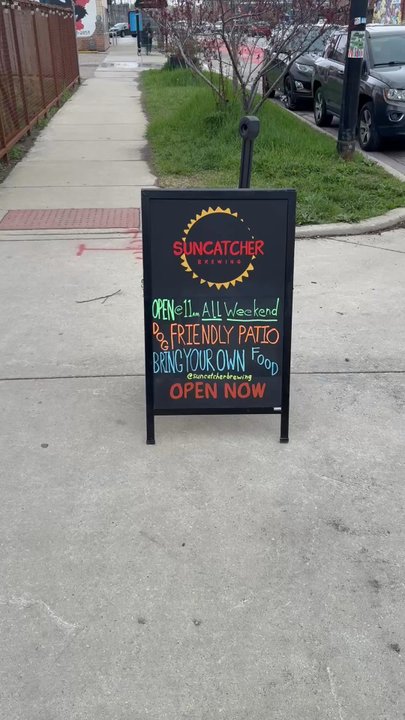 SUNCATCHER
BREWING
OPEN @ 11am ALL Weekend
DOG FRIENDLY PATIO
BRING YOUR OWN FOOD
@suncatcherbrewing
OPEN NOW